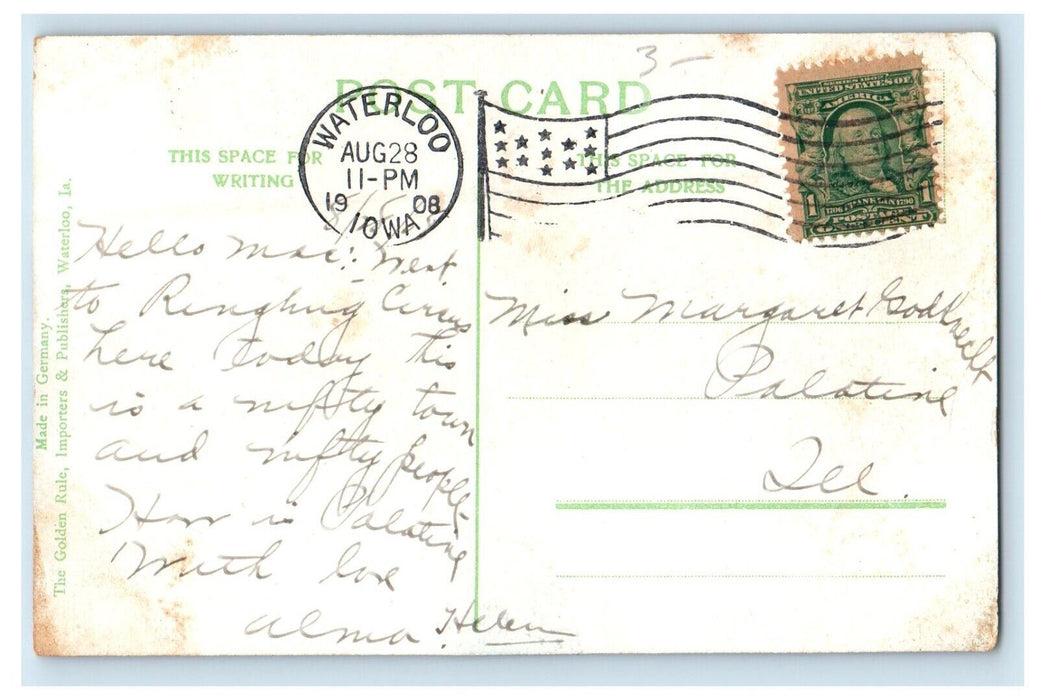 3-
POST CARD
WATERLOO
AUG 28
11-PM
1908
IOWA
SERIES 1902
UNITED STATES OF
AMERICA
1706 FRANKLIN 1790
1 POSTAGE 1
ONE CENT
THIS SPACE FOR
WRITING
THIS SPACE FOR
THE ADDRESS
Hello Mae: Went
to Ringling Circus
here today this
is a nifty town
and nifty people-
How is Palatine
With love
Alma Helen
Miss Margaret Godknecht
Palatine
Ill.
Made in Germany.
The Golden Rule, Importers & Publishers, Waterloo, Ia.